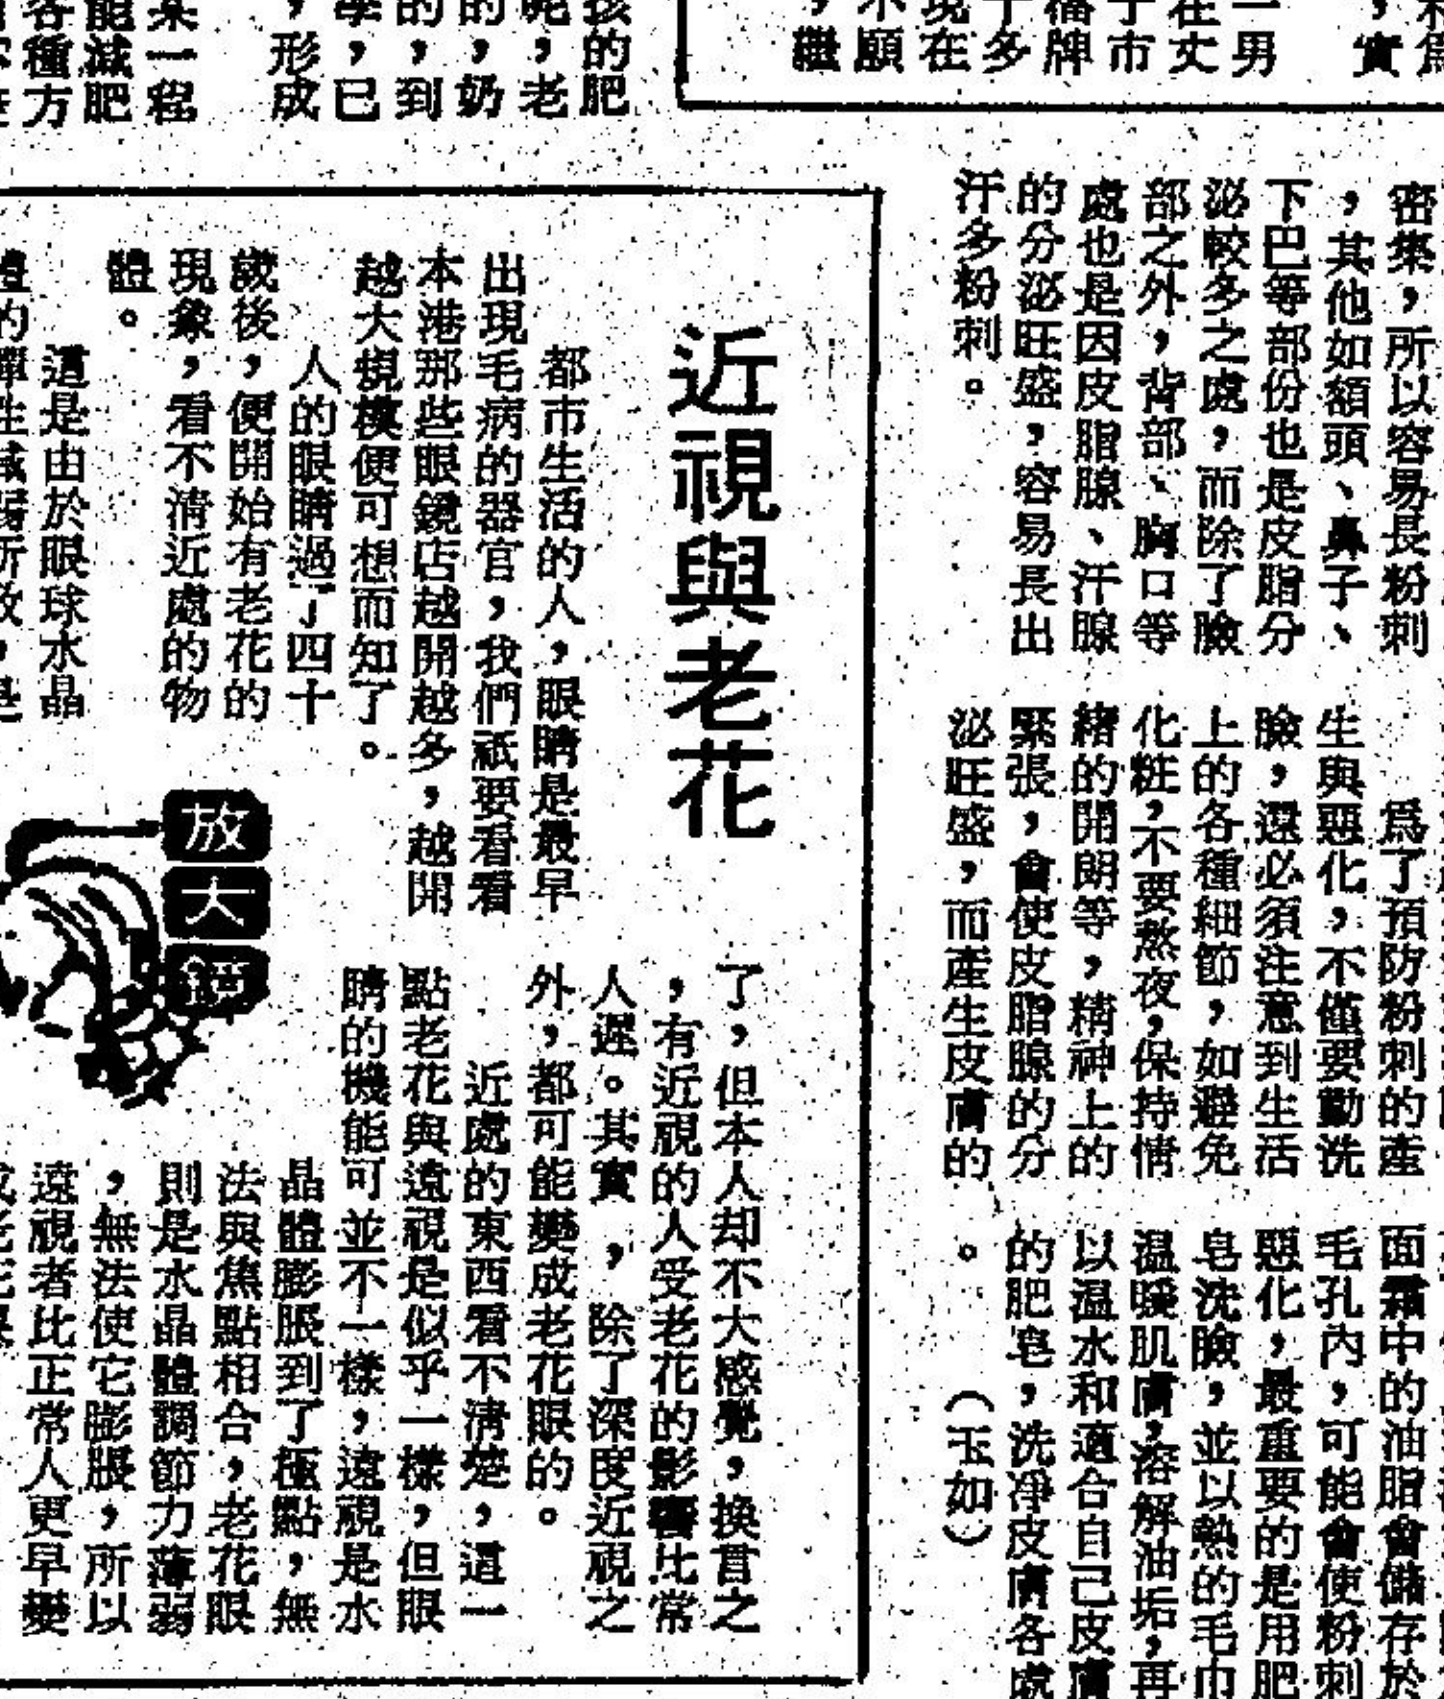 一男
在丈
于市
牌
十多
現在
不願
，繼
，實
孩的肥
，老
的，奶
的，到
學，已
，形成
某一程
能減肥
各種方
密集，所以容易長粉刺
，其他如額頭、鼻子、
下巴等部份也是皮脂分
泌較多之處，而除了臉
部之外，背部、胸口等
處也是因皮脂腺、汗腺
的分泌旺盛，容易長出
汗多粉刺。
爲了預防粉刺的產
生與惡化，不僅要勤洗
臉，還必須注意到生活
上的各種細節，如避免
化粧，不要熬夜，保持情
緒的開朗等，精神上的
緊張，會使皮脂腺的分
泌旺盛，而產生皮膚的
面霜中的油脂會儲存於
毛孔內，可能會使粉刺
惡化，最重要的是用肥
皂洗臉，並以熱的毛巾
溫暖肌膚，溶解油垢，再
以溫水和適合自己皮膚
的肥皂，洗淨皮膚各處
。　（玉如）
近視與老花
都市生活的人，眼睛是最早
出現毛病的器官，我們祇要看看
本港那些眼鏡店越開越多，越開
越大規模便可想而知了。
人的眼睛過了四十
歲後，便開始有老花的
現象，看不清近處的物
體。
這是由於眼球水晶
體的彈性減弱所致，是
放大鏡
了，但本人却不大感覺，換言之
，有近視的人受老花的影響比常
人遲。其實，除了深度近視之
外，都可能變成老花眼的。
近處的東西看不清楚，這一
點老花與遠視是似乎一樣，但眼
睛的機能可並不一樣，遠視是水
晶體膨脹到了極點，無
法與焦點相合，老花眼
則是水晶體調節力薄弱
，無法使它膨脹，所以
遠視者比正常人更早變
成老花眼